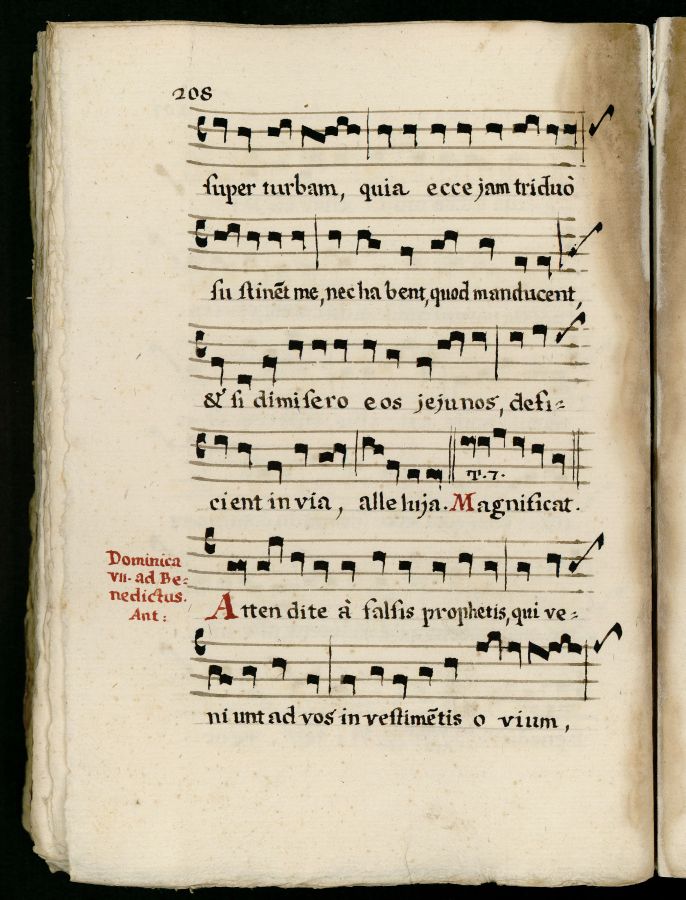 208
super turbam, quia ecce jam triduò
su stinēt me, nec ha bent, quod manducent,
& si dimisero eos jejunos, defi=
cient in via, alle luja. Magnificat.
T. 7.
Dominica
VII. ad Be=
nedictus.
Ant:
Atten dite à falsis prophetis, qui ve=
ni unt ad vos in vestimētis o vium,